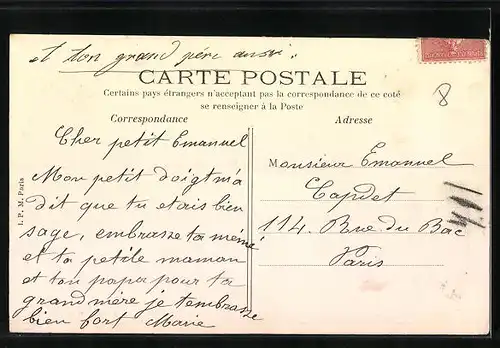 et ton grand père aussi..
CARTE POSTALE
Certains pays étrangers n'acceptant pas la correspondance de ce coté
se renseigner à la Poste
8
Correspondance
Adresse
Cher petit Emanuel
Mon petit doigt m'a
dit que tu etais bien
sage, embrasse ta mémé
et ta petite maman
et ton papa pour ta
grand mère je t'embrasse
bien fort Marie
Monsieur Emanuel
Capdet
114. Rue du Bac
Paris
I. P. M. Paris